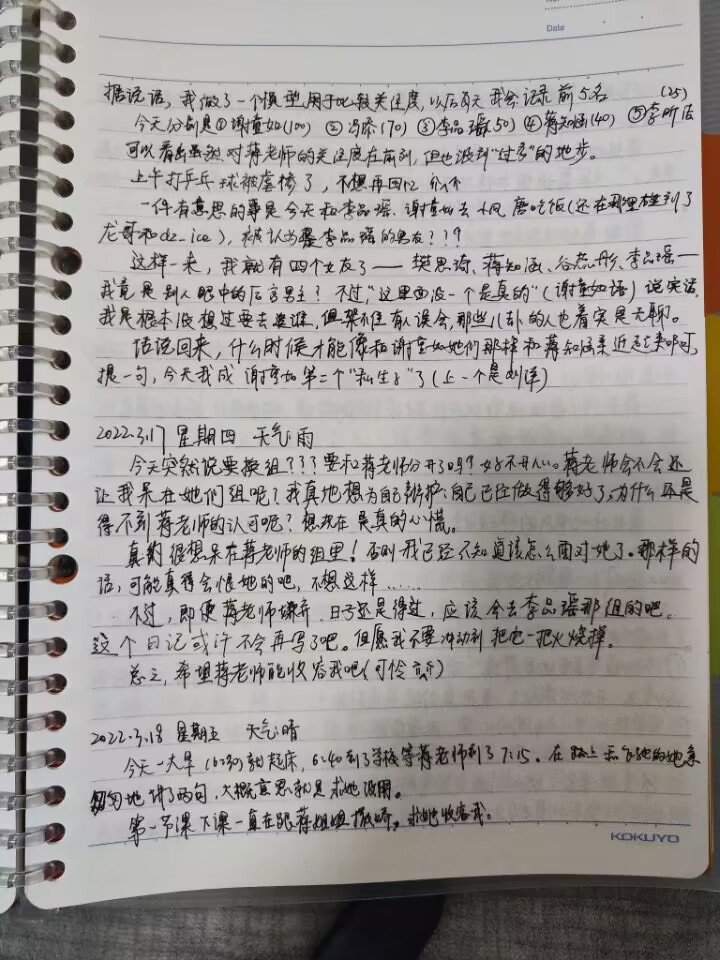 Date
据说话，我做了一个模型用于比较关注度，以后每天我会记录前5名 (25)
今天分别是①谢董如(100) ②冯添(70) ③李品瑶(50) ④蒋知涵(40) ⑤李昕洁
可以看出虽然对蒋老师的关注度在前列，但也没到“过多”的地步。
上午打乒乓球被虐惨了，不想再回忆
一件有意思的事是今天和李品瑶、谢董如去小吃 唐吃饭(还在那里碰到了
龙哥和de_ice)，被认为是李品瑶的男友？？？
这样一来，我就有四个女友了——樊思琦、蒋知涵、谷 彤、李品瑶——
我竟是别人眼中的后宫男主？不过，“这里面没一个是真的”(谢董如语)说实话，
我是根本没想过要去 谁，但架不住有人误会，那些八卦的人也着实是无聊。
话说回来，什么时候才能像和谢董如她们那样和蒋知涵亲近起来啊，
提一句，今天我成谢董如第二个“私生子”了(上一个是刘洋)
2022.3.17 星期四 天气：雨
今天突然说要换组？？？要和蒋老师分开了吗？好不开心。蒋老师会不会还
让我呆在她们组呢？我真地想为自己辩护：自己已经做得够好了，为什么还是
得不到蒋老师的认可呢？想现在是真的心慌。
真的很想呆在蒋老师的组里！否则我已经不知道该怎么面对她了。那样的
话，可能真得会恨她的吧，不想这样……
不过，即便蒋老师嫌弃，日子还是得过，应该会去李品瑶那组的吧。
这个日记或许不会再写了吧。但愿我不要冲动到把它一把火烧掉。
总之，希望蒋老师能收容我吧(可怜 )
2022.3.18 星期五 天气：晴
今天一大早(6:30)就起床，6:40到了学校等蒋老师到了7:15。在路上和 的她匆
匆地讲了两句，大概意思就是求她收留。
第一节课下课一直在跟蒋姐姐撒娇，求她收容我。
KOKUYO